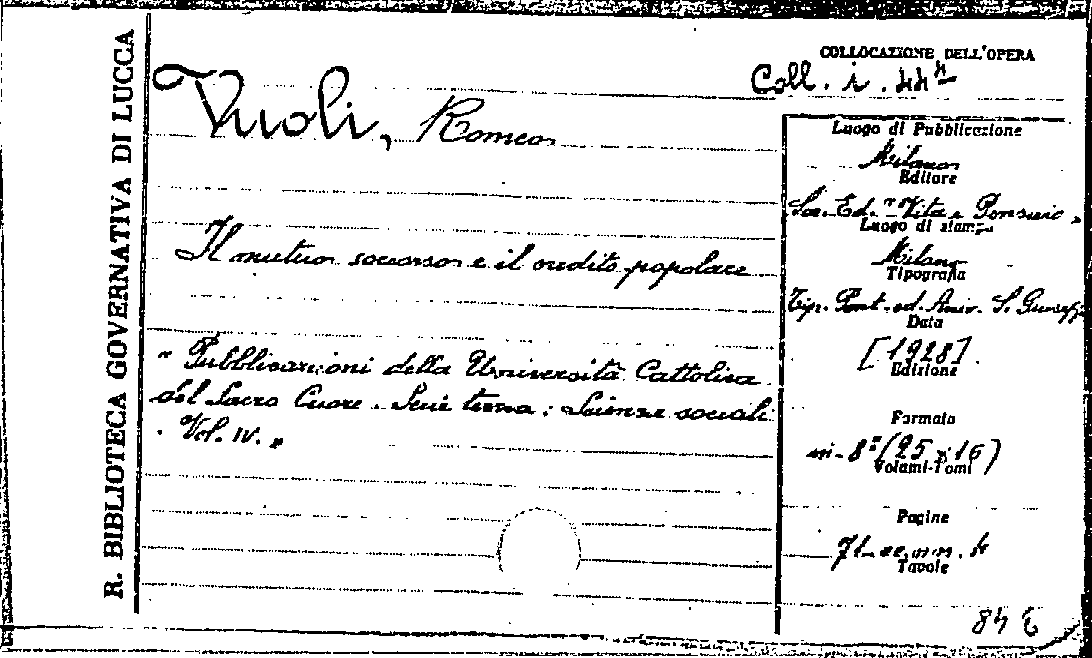 R. BIBLIOTECA GOVERNATIVA DI LUCCA
COLLOCAZIONE DELL'OPERA
Coll. i. 44
Vuoli, Romeo
Il mutuo soccorso e il credito popolare
" Pubblicazioni della Università Cattolica
del Sacro Cuore. Serie terza: Scienze sociali
. Vol. IV. "
Luogo di Pubblicazione
Milano
Editore
Soc. Ed. "Vita e Pensiero"
Luogo di stampa
Milano
Tipografia
Tip. Pont. ed. Arciv. S. Giuseppe
Data
[1928].
Edizione
Formato
in-8º (25 x 16)
Volumi-Tomi
Pagine
Tavole